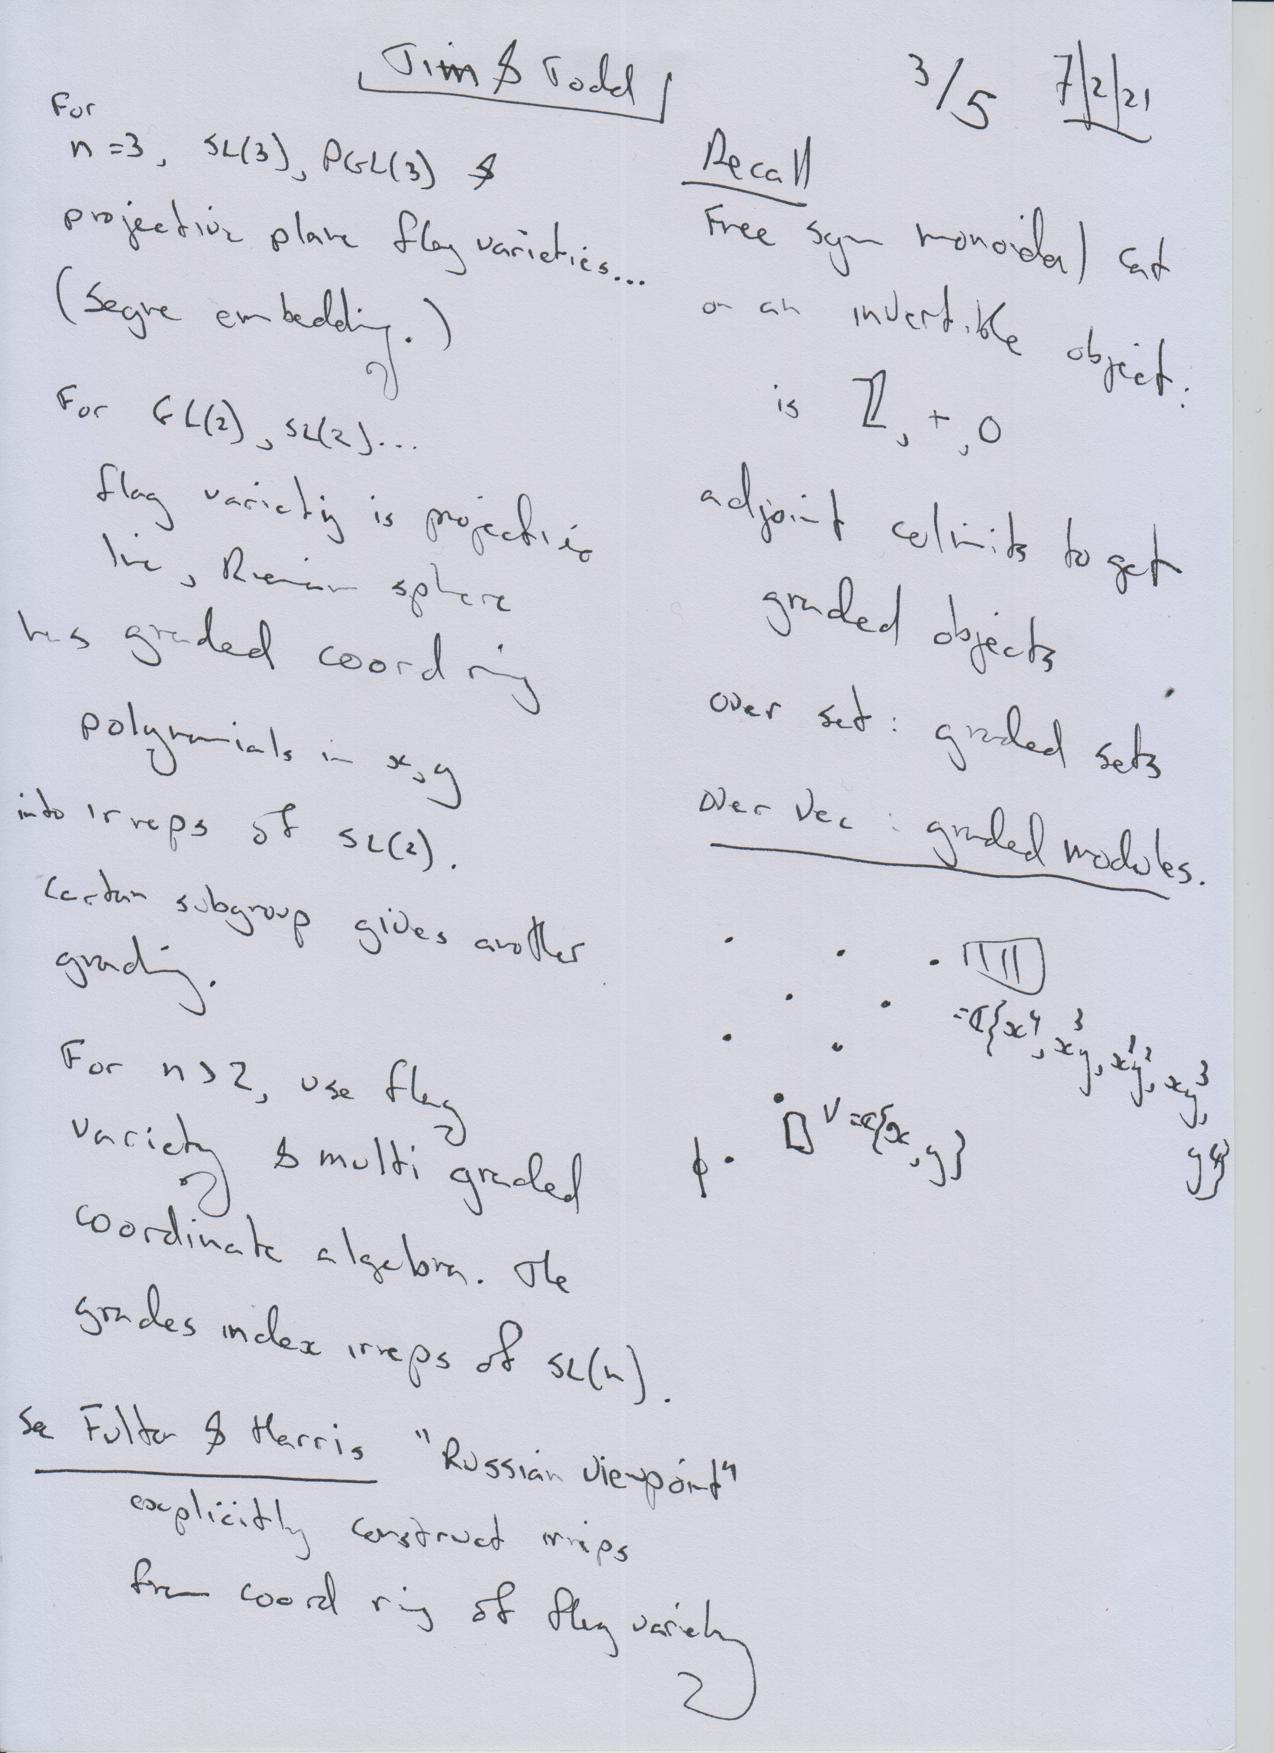 Jim & Todd
3/5 7/2/21
For
n=3, SL(3), PGL(3) &
projective plane flag varieties...
(Segre embedding.)
For GL(2), SL(2)...
flag variety is projective
line, Riemann sphere
has graded coord ring
polynomials in x,y
into irreps of SL(2).
Certain subgroup gives another
grading.
For n>2, use flag
variety & multi graded
coordinate algebra. The
grades index irreps of SL(n).
See Fulton & Harris "Russian viewpoint"
explicitly construct irreps
from coord ring of flag variety
Recall
Free sym monoidal cat
on an invertible object:
is ℤ, +, 0
adjoint colimits to get
graded objects
over set : graded sets
over Vec : graded modules.
=ℂ{x⁴, x³y, x²y², xy³,
y⁴}
V=ℂ{x,y}
ϕ